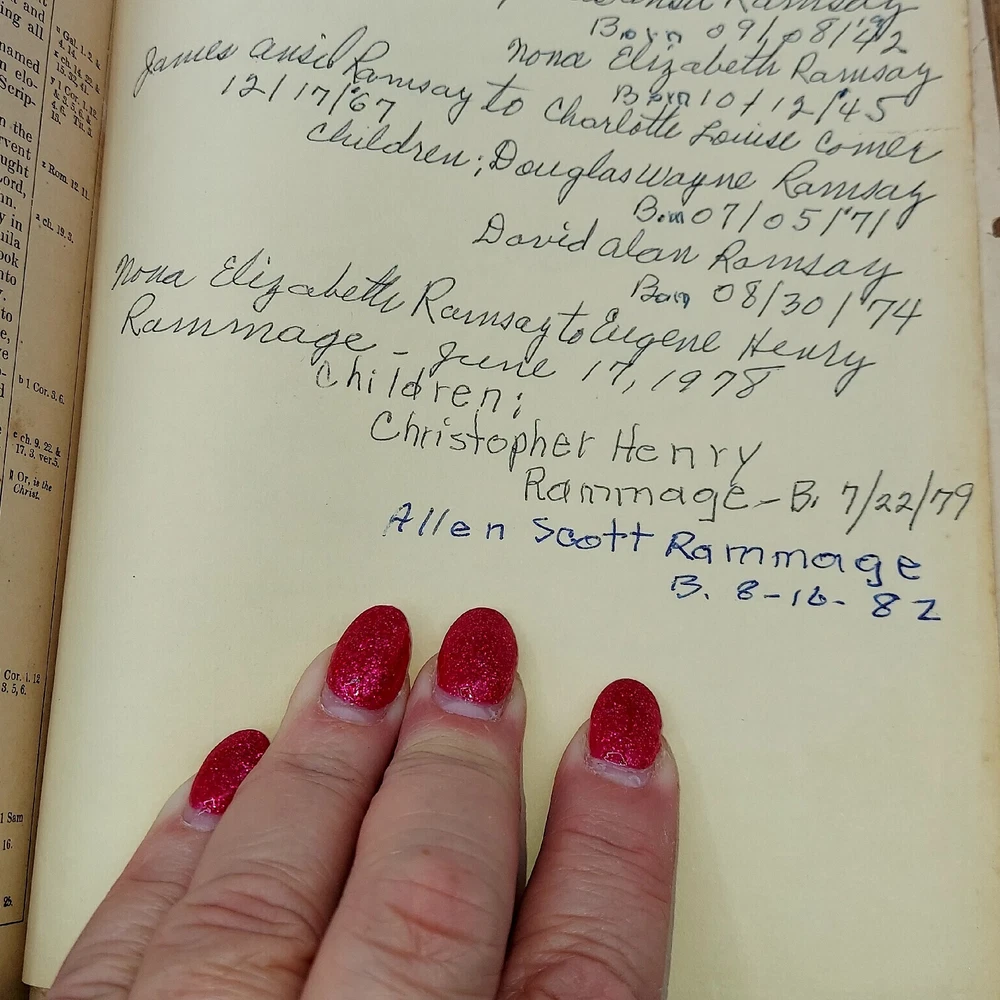 and
ing all
named
n elo-
Scrip-
n the
rvent
ught
Lord,
hn.
y in
uila
ook
nto
to
e,
ve
* Gal. 1. 2. &
4. 14.
15. 32, 41.
y 1 Cor. 1. 12.
& 3. 5, 6. &
4. 6. Tit. 3.
13.
z Rom. 12. 11.
a ch. 19. 3.
b 1 Cor. 3. 6.
c ch. 9. 22. &
17. 3. ver. 5.
‖ Or, is the
Christ.
Cor. 1. 12
3. 5, 6.
1 Sam
16.
25.
Ramsay
Born 09/08/'42
Nona Elizabeth Ramsay
Born 10/12/'45
James Ansil Ramsay to Charlotte Louise Comer
12/17/'67
Children; Douglas Wayne Ramsay
Born 07/05/'71
David Alan Ramsay
Born 08/30/'74
Nona Elizabeth Ramsay to Eugene Henry
Rammage - June 17, 1978
Children;
Christopher Henry
Rammage - B. 7/22/79
Allen Scott Rammage
B. 8-16-82